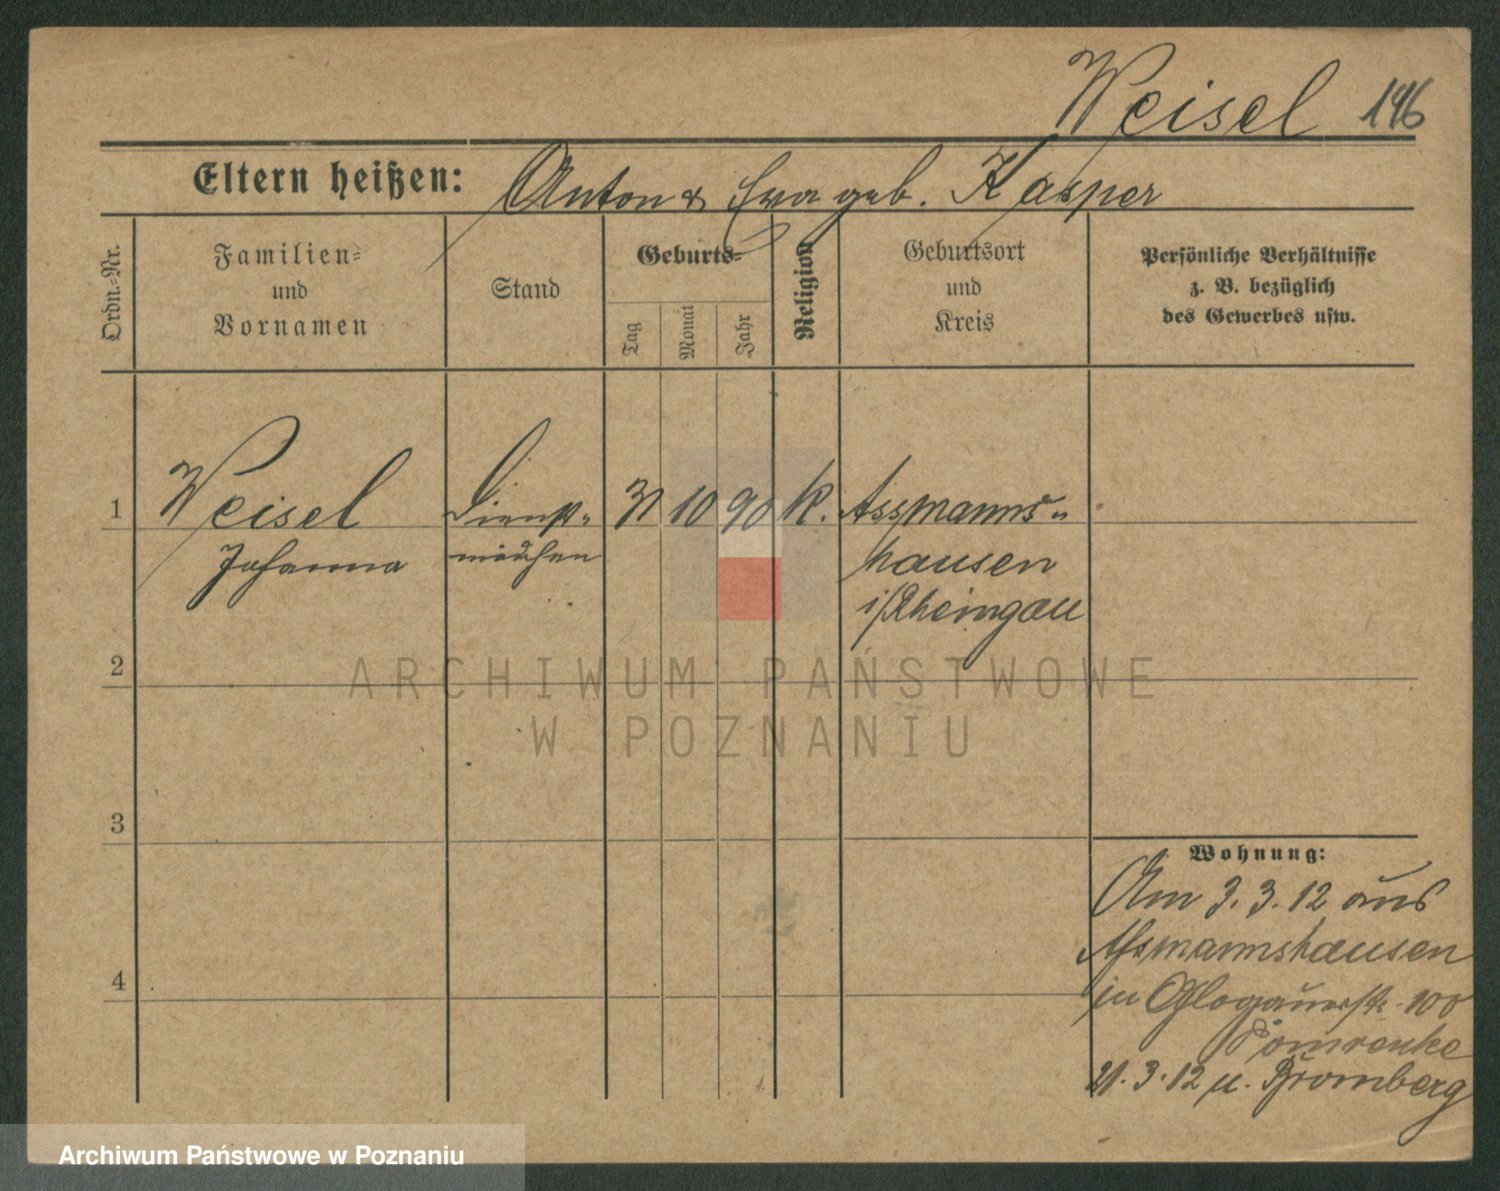 Weisel 146
Eltern heißen: Anton & Eva geb. Kasper
Ordn.-Nr.
Familien-
und
Vornamen
Stand
Geburts-
Tag
Monat
Jahr
Religion
Geburtsort
und
Kreis
Persönliche Verhältnisse
z. B. bezüglich
des Gewerbes usw.
1 Weisel Dienst- 31 10 90 K. Assmanns-
Johanna mädchen hausen
i/Rheingau
2
ARCHIWUM PAŃSTWOWE
W POZNANIU
3
Wohnung:
Am 3.3.12 aus
Assmannshausen
in Glogauerstr. 100
4
21.3.12 n. Bromberg
Archiwum Państwowe w Poznaniu